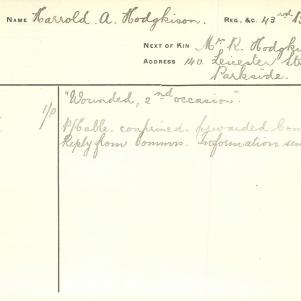 NAME Harrold. A. Hodgkison. REG. &C. 43rd B
NEXT OF KIN Mr. R. Hodgki
ADDRESS 140 Leicester Str
Parkside.
"Wounded, 2nd occasion".
1/0 P/Cable. confirmed. forwarded Com
Reply from Commn. Information sen